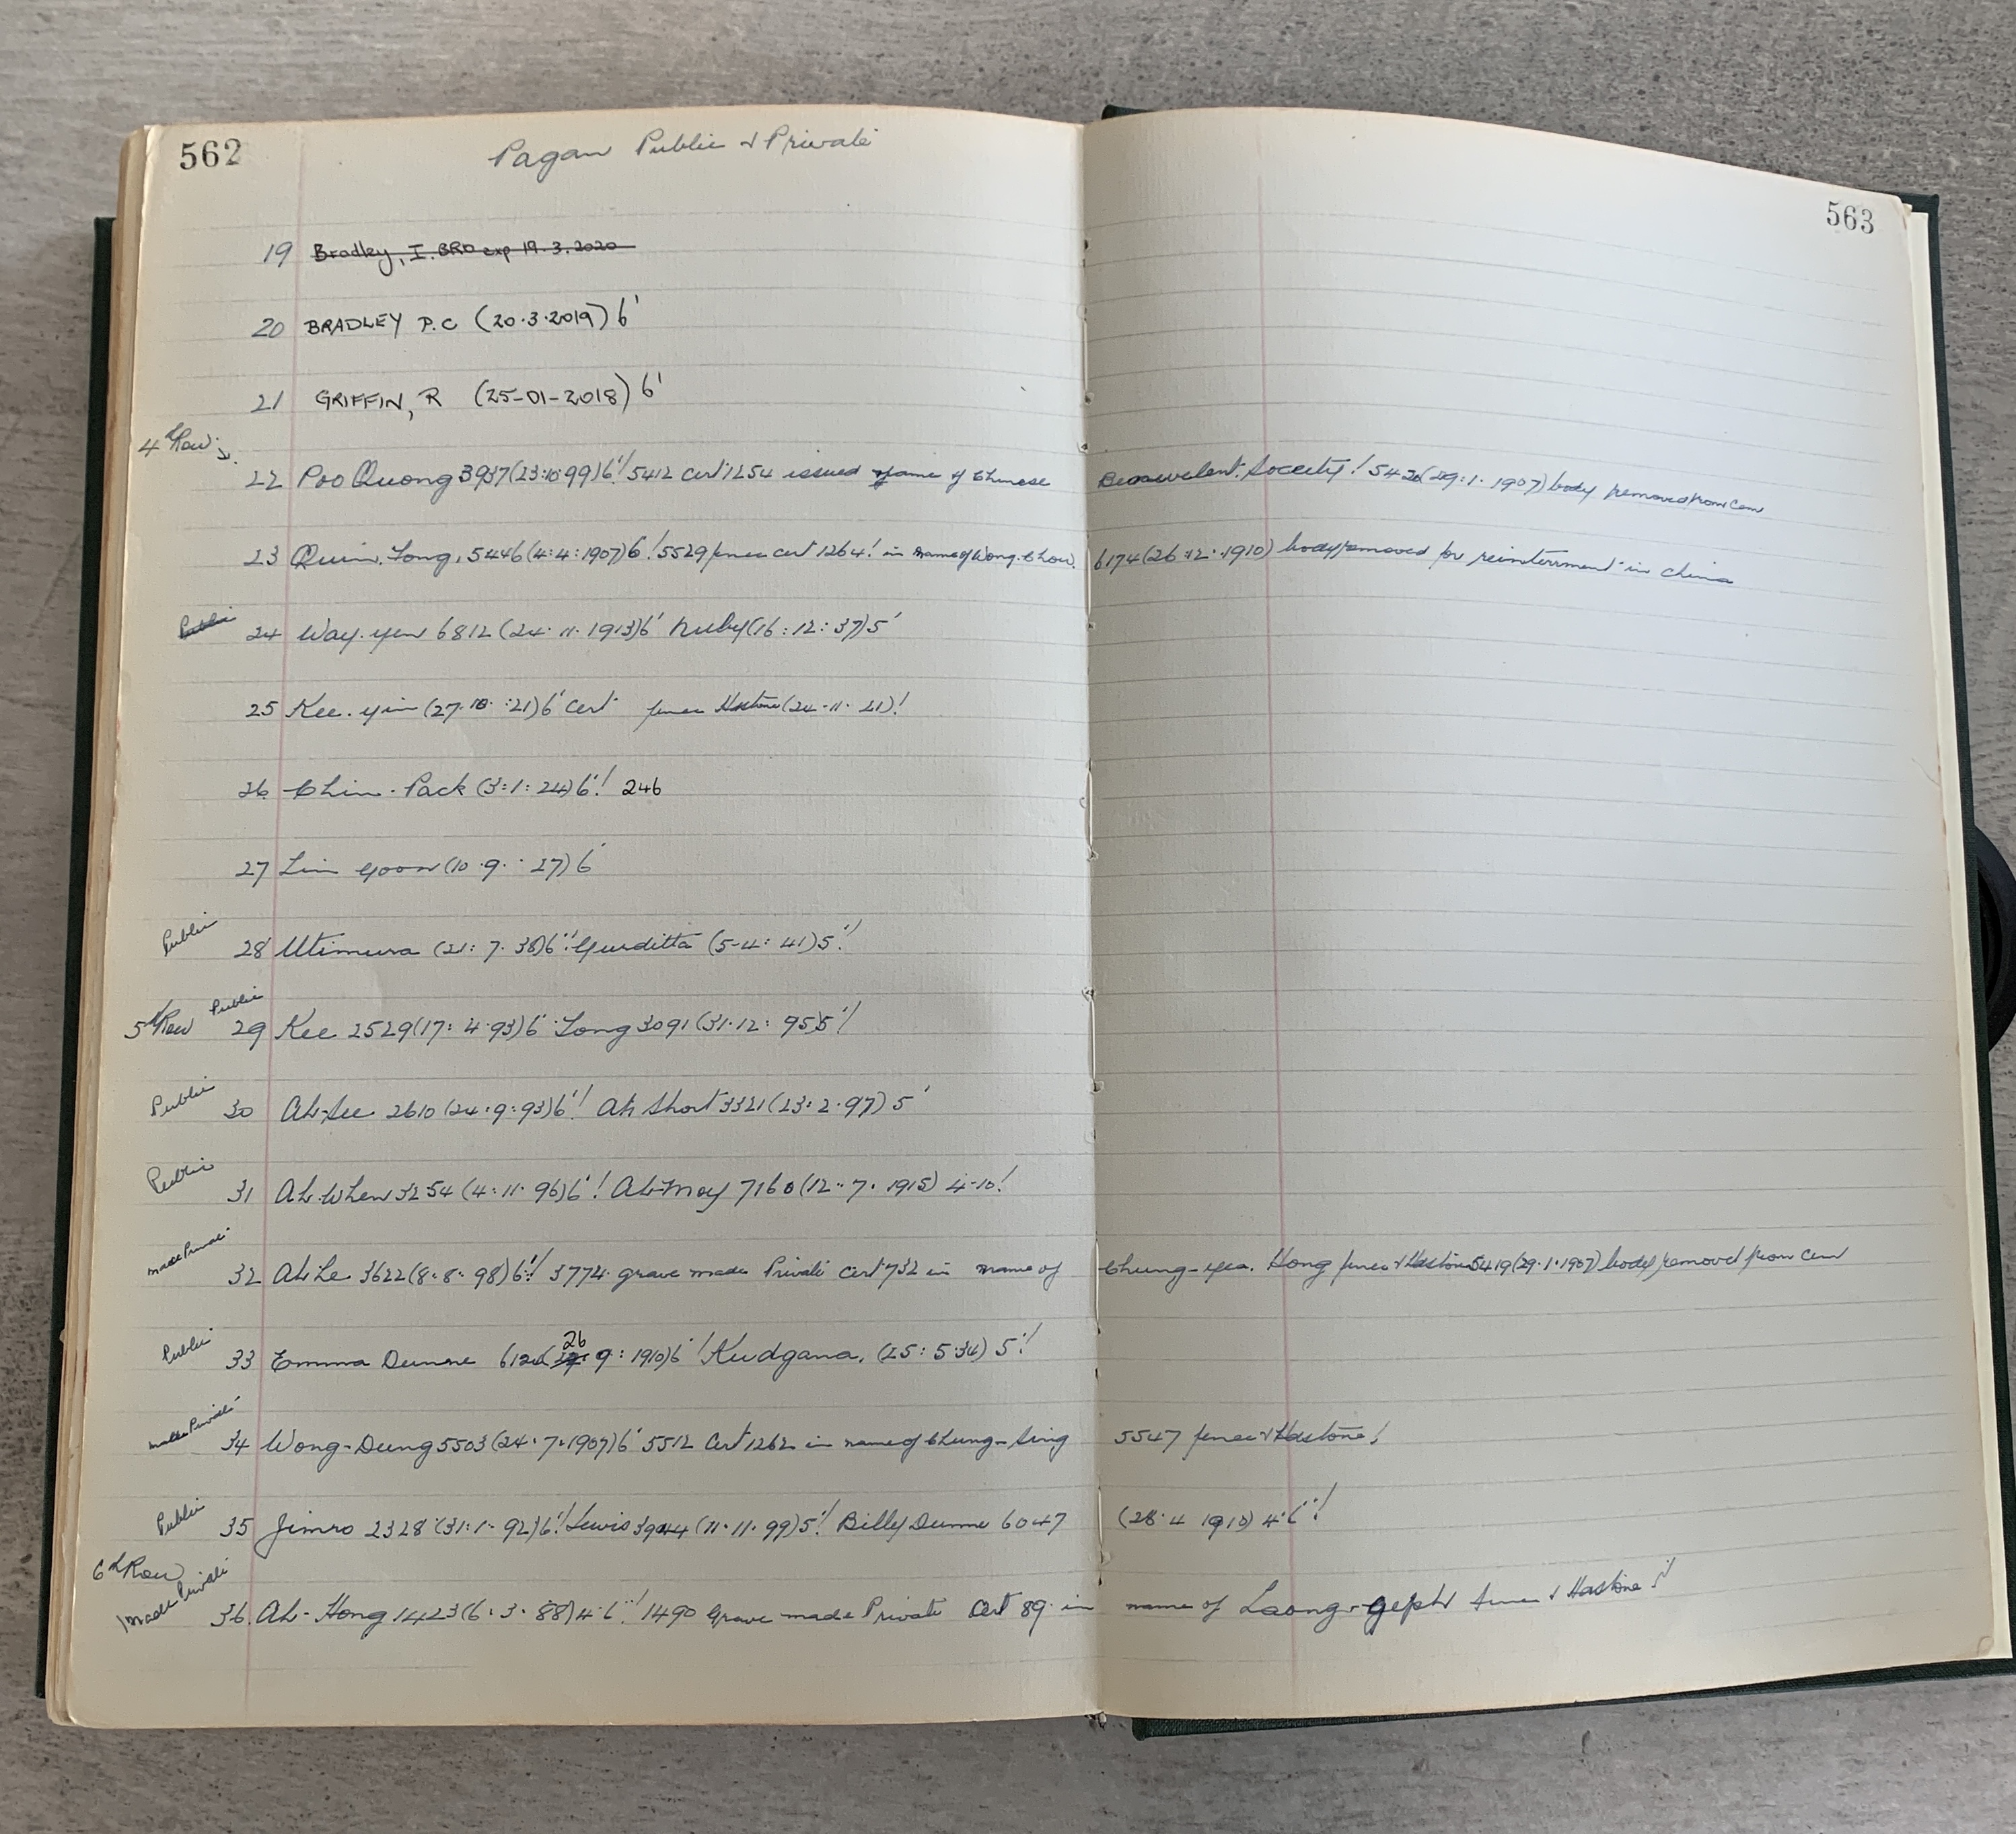 562
Pagan Public & Private
563
19 Bradley, I. BRD exp 19.3.2020
20 BRADLEY P.C (20.3.2019) 6'
21 GRIFFIN, R (25-01-2018) 6'
4th Row
22 Poo Quong 3937 (23:10:99) 6'! 5412 cert 1254 issued name of Chinese Benevelent. Society! (29:1:1907) body removed from Cem
23 Quin. Long. 5446 (4:4:1907) 6'! 5529 fence cert 1264! in name of Wong. Chow. 6174 (26:12:1910) body removed for reinterrment in China
Public 24 Way. yen 6812 (24.11.1913) 6' Ruby (16:12:37) 5'
25 Kee. yin (27.10.:21) 6' Cert fence Hstone (24-11-21)!
26 Chin. Pack (3:1:24) 6'! 246
27 Lin Yoon (10.9.27) 6'
Public 28 Utimura (21:7.38) 6'! Gurditta (5-4:41) 5'!
5th Row Public 29 Kee 2529 (17:4.93) 6' Long 3091 (31.12:95) 5'!
Public 30 Ah-See 2610 (24:9:93) 6'! Ah Short 3321 (23:2.97) 5'
Public 31 Ah. When 3254 (4:11.96) 6'! Ah-Moy 7160 (12.7.1915) 4-10!
made Private 32 Ah Le 3622 (8:8:98) 6'! 3774 grave made Private Cert 732 in name of Chung-yea. Hong fence & Hastone 5419 (29.1.1907) body removed from Cem
Public 33 Emma Dunne (26 9:1910) 6'! Kudgana. (25:5.34) 5'!
made Private 34 Wong-Dung 5503 (24.7.1907) 6' 5512 Cert 1262 in name of Chung-Sing 5547 fence & Hastone!
Public 35 Jimro 2328 (31:1.92) 6'! Lewis 3944 (11.11.99) 5'! Billy Dunne 6047 (28.4 1910) 4'6"!
6th Row
made Private 36. Ah-Hong 1423 (6:3.88) 4'6"! 1490 Grave made Private Cert 89 in name of fence & Hastone!